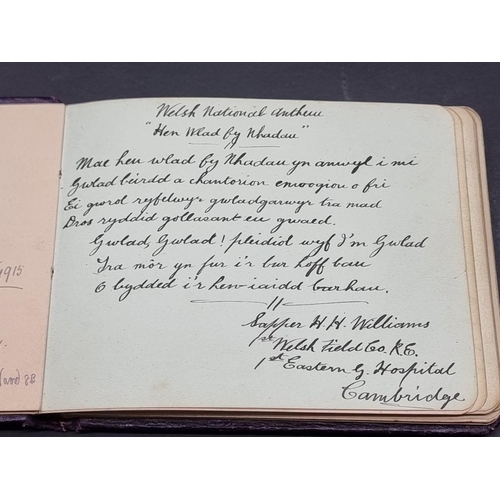 Welsh National Anthem
"Hen Wlad fy Nhadau"
Mae hen wlad fy Nhadau yn anwyl i mi
Gwlad beirdd a chantorion enwogion o fri
Ei gwrol ryfelwyr gwladgarwyr tra mad
Dros ryddid gollasant eu gwaed.
Gwlad, Gwlad! pleidiol wyf I'm Gwlad
Tra môr yn fur i'r bur hoff bau
O bydded i'r hen iaidd barhau.
Sapper H. H. Williams
1st Welsh Field Co. R.E.
1st Eastern G. Hospital
Cambridge
1915